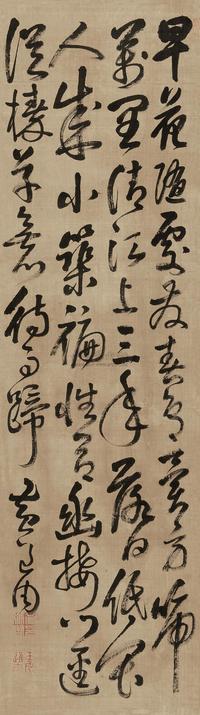 早花隨處發春鳥異方啼
萬里清江上三年落日低畏
人成小築褊性合幽棲門逕
從榛草無心待馬蹄 黃道周